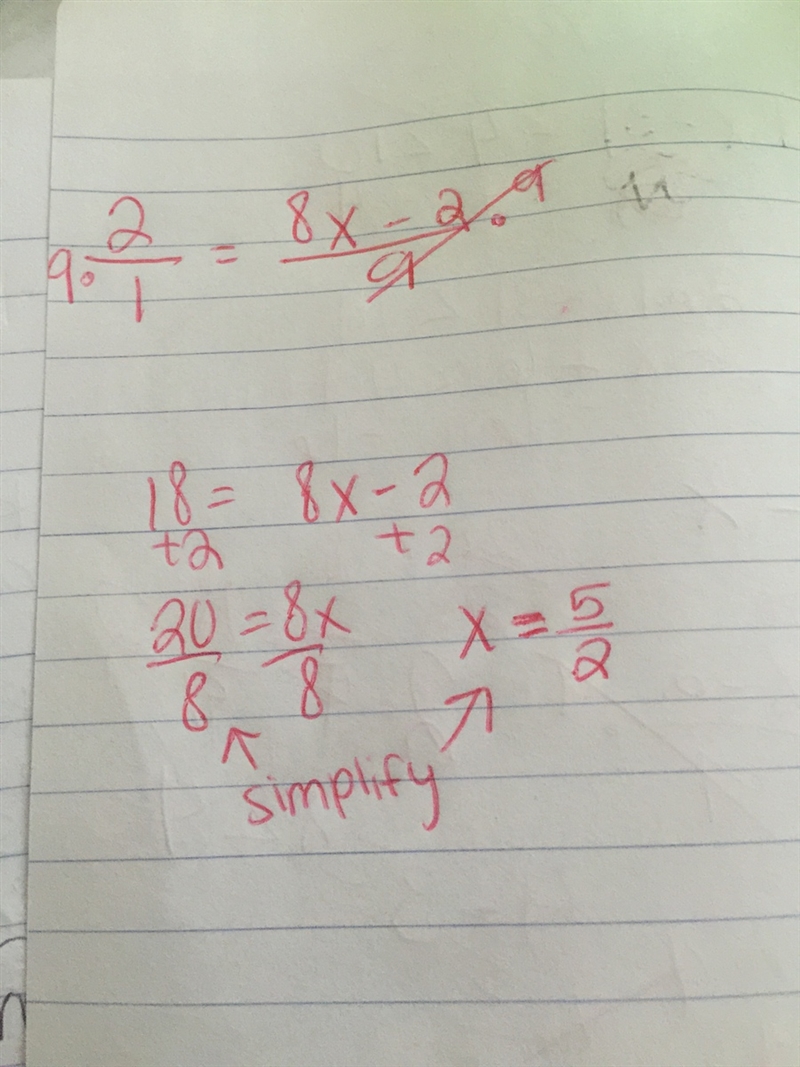 9 · 2/1 = (8x - 2)/9 · 9
18 = 8x - 2
+2 +2
20/8 = 8x/8 x = 5/2
simplify